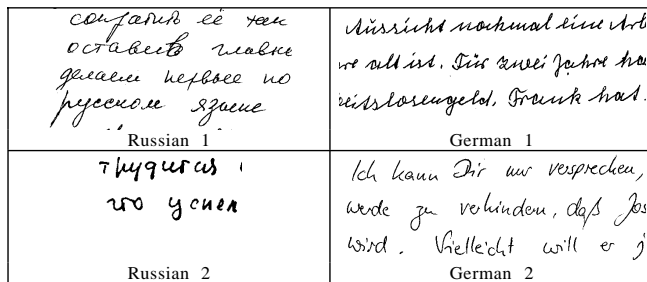 сократить её так
оставить главн
делаем первое по
русском языке
Russian 1
Aussicht nochmal eine Arb
re alt ist. Für zwei Jahre ha
eitslosengeld. Frank hat
German 1
трудится
что успел
Russian 2
Ich kann Dir nur versprechen,
werde zu verhindern, daß Jos
wird. Vielleicht will er j
German 2